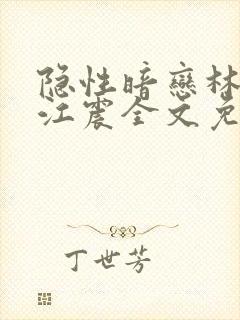 隐性暗恋林
江震全文免
丁世芳